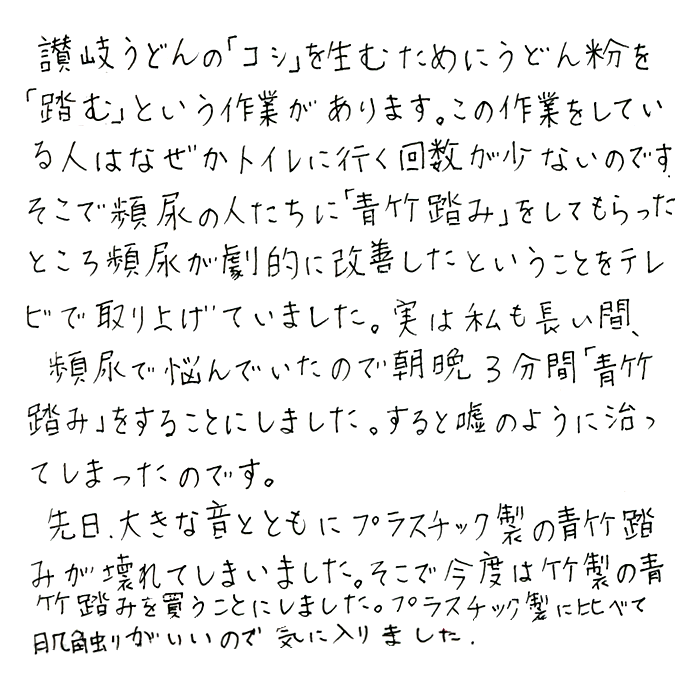 讃岐うどんの「コシ」を生むためにうどん粉を
「踏む」という作業があります。この作業をしてい
る人はなぜかトイレに行く回数が少ないのです.
そこで頻尿の人たちに「青竹踏み」をしてもらった
ところ頻尿が劇的に改善したということをテレ
ビで取り上げていました。実は私も長い間、
頻尿で悩んでいたので朝晩3分間「青竹
踏み」をすることにしました。すると嘘のように治っ
てしまったのです。
先日、大きな音とともにプラスチック製の青竹踏
みが壊れてしまいました。そこで今度は竹製の青
竹踏みを買うことにしました。プラスチック製に比べて
肌触りがいいので気に入りました.